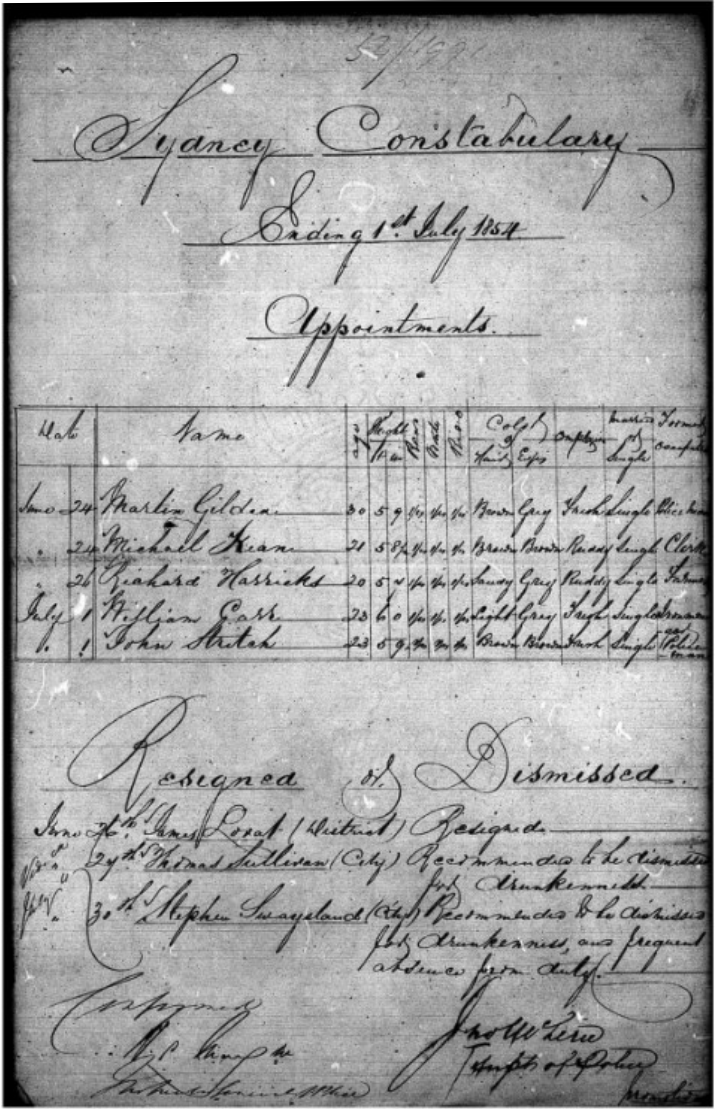 Sydney Constabulary
Ending 1st July 1854.
Appointments.
Date Name age Height Read Write Colr of Married or Single
Hair Eyes
June 24 Martin Gilden 30 5 9 yes yes yes Brown Grey Irish Single Policeman
" 24 Michael Kean 21 5 8½ yes yes yes Brown Brown Ruddy Single Clerk
" 26 Richard Harricks 20 5 yes yes yes Sandy Grey Ruddy Single Farmer
July 1 William Carr 23 6 0 yes yes yes Light Grey Irish Single
" 1 John Stritch 23 5 9 yes yes yes Brown Brown Irish Single Policeman
Resigned or Dismissed.
June James Lovat (District) Resigned
29th Thomas Sullivan (City) Recommended to be dismissed
for drunkenness.
30th Stephen Swaysland (City) Recommended to be dismissed
for drunkenness, and frequent
absence from duty.
Confirmed
Supt of Police